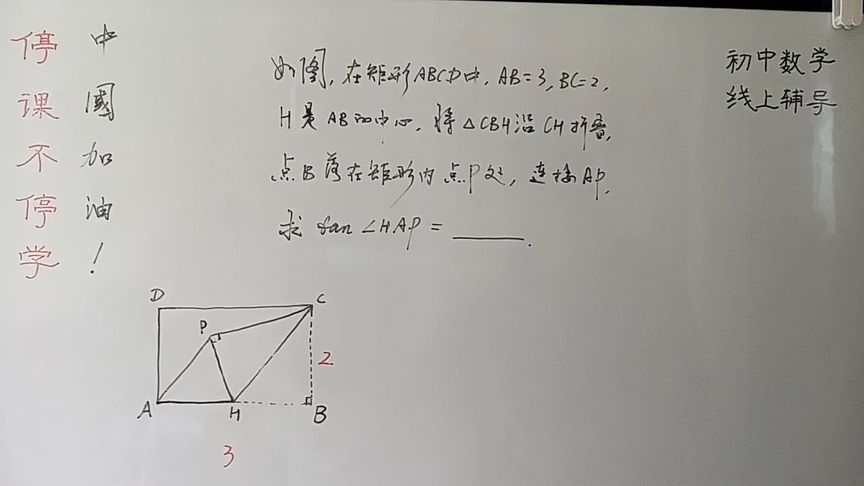 停课不停学
中國加油！
如图,在矩形ABCD中,AB=3,BC=2,
H是AB的中心,将△CBH沿CH折叠,
点B落在矩形内点P处,连接AP,
求 tan∠HAP=______.
初中数学
线上辅导
D
C
P
2
A
H
B
3